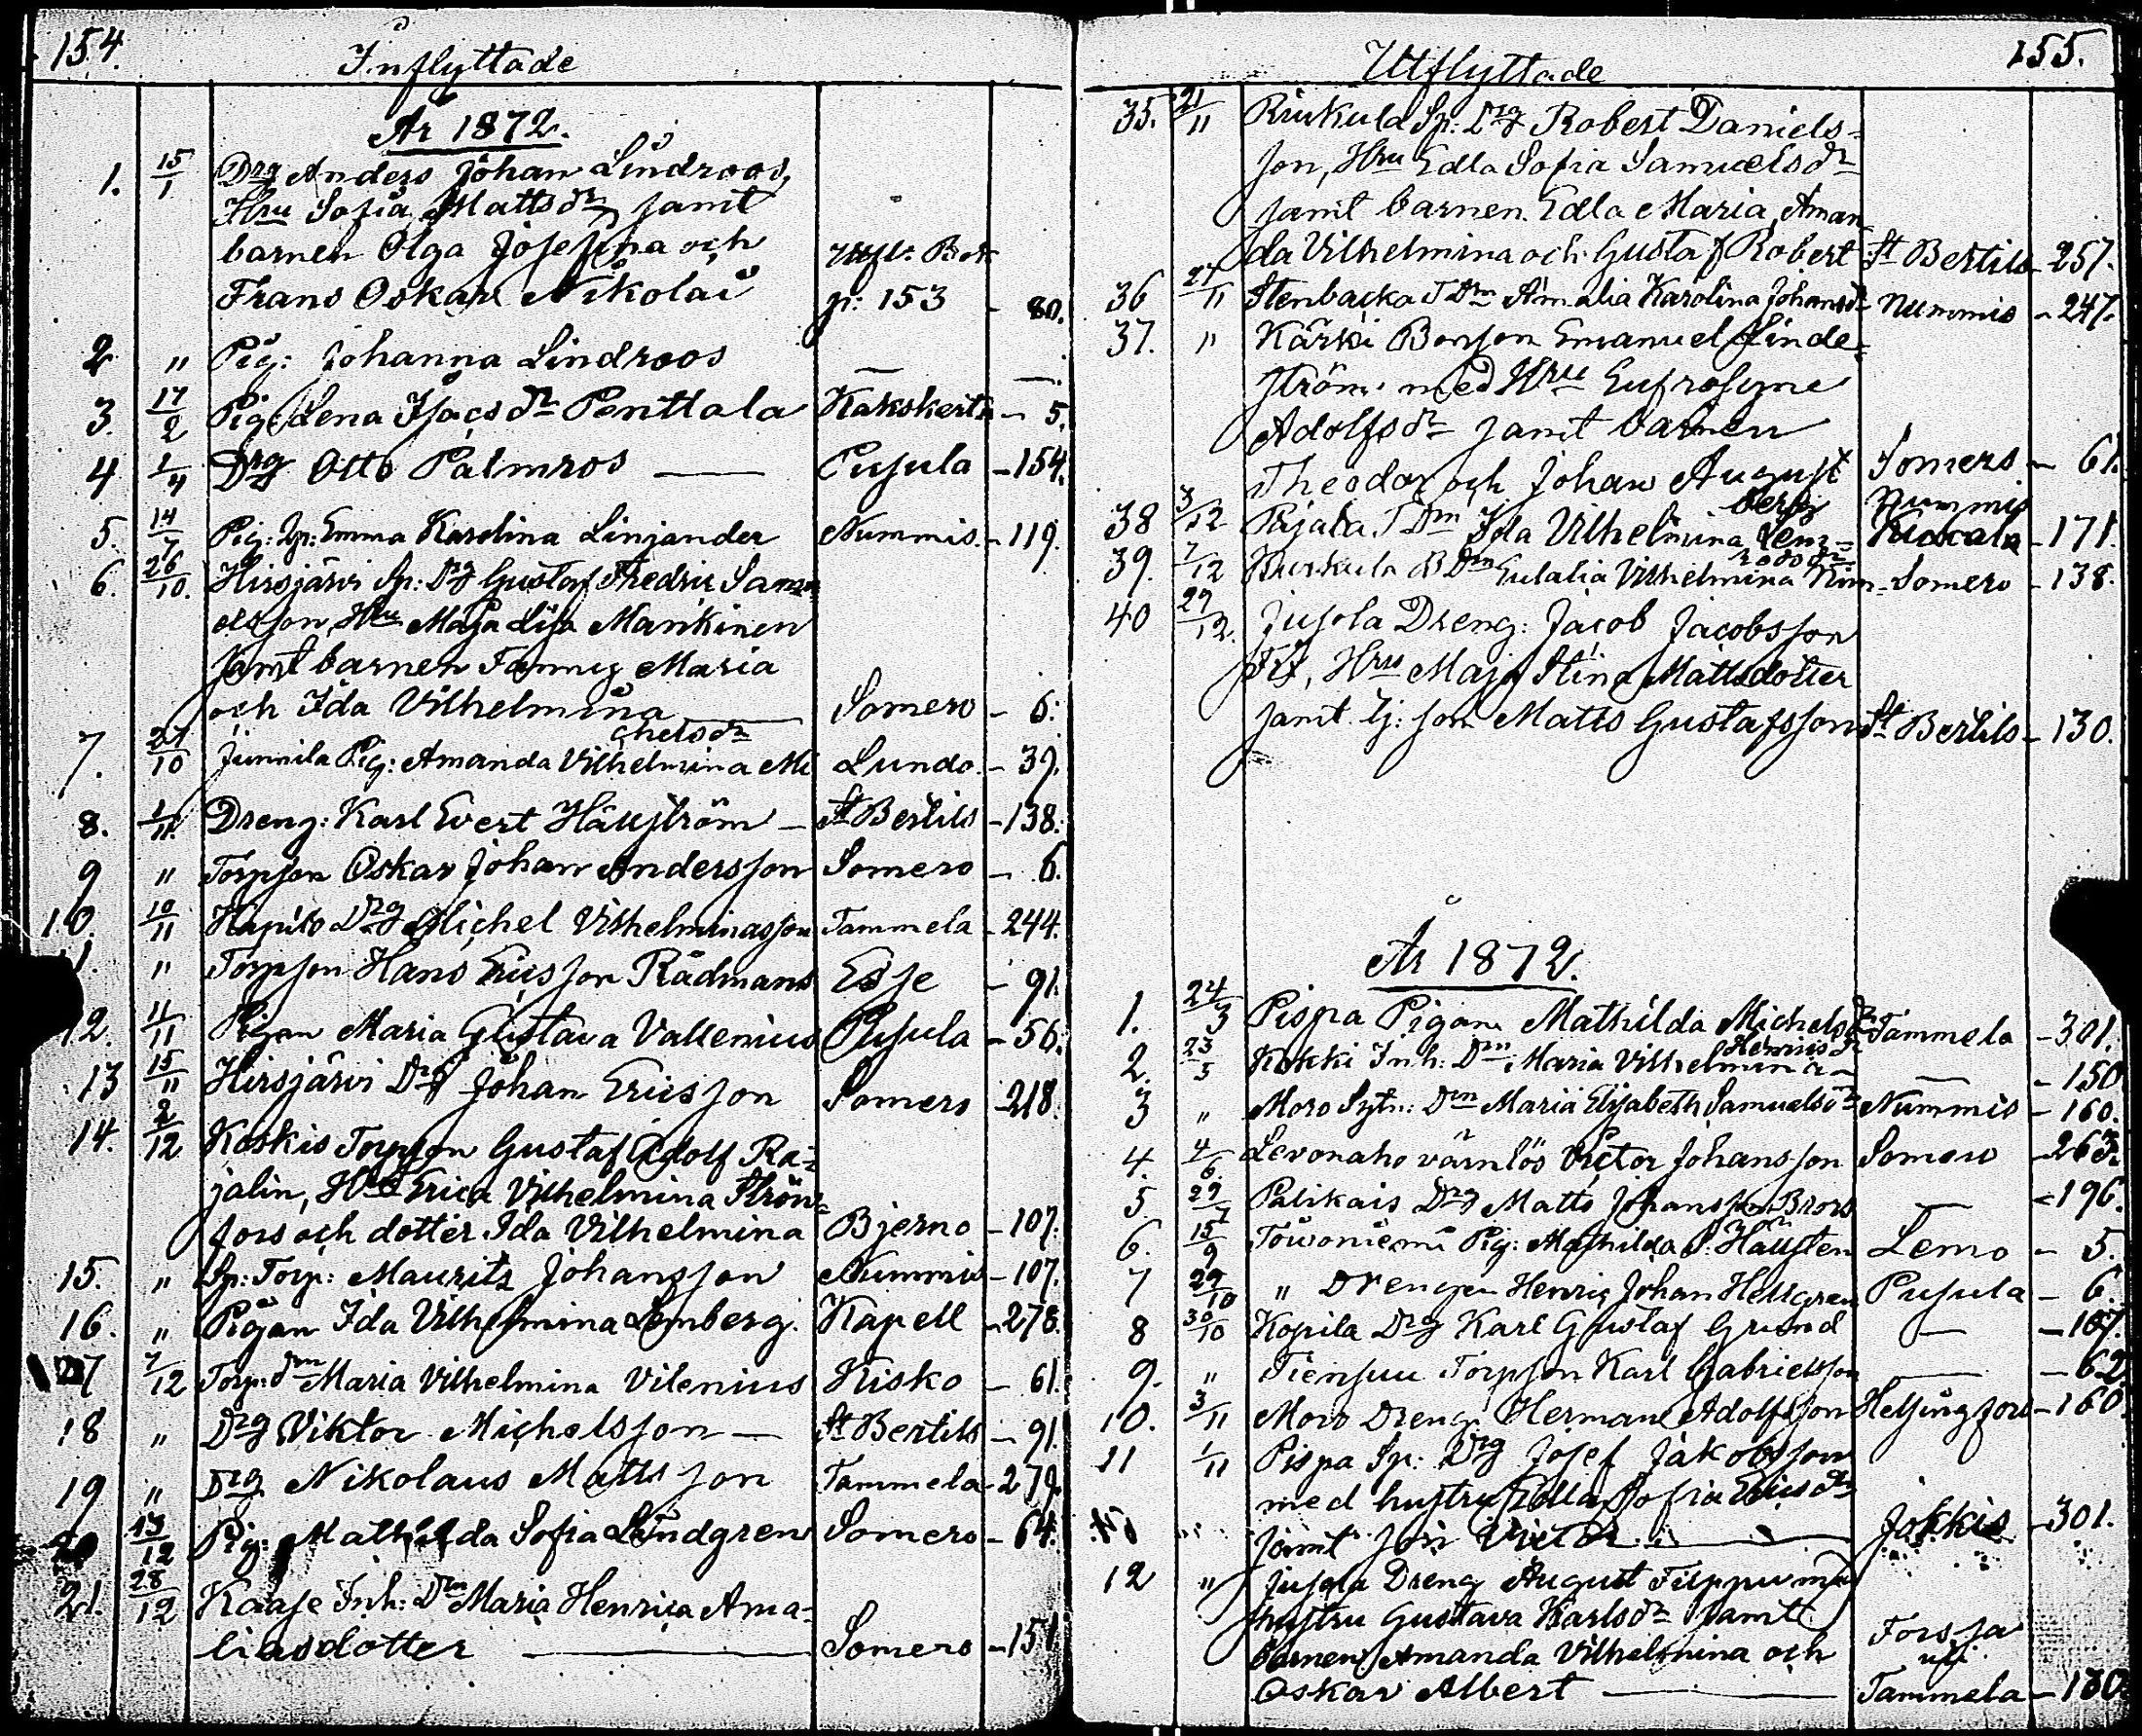 154.
Inflyttade
År 1872.
1. 15/1 Drg Anders Johan Lindroos,
Hru Sofia Mattsdr samt
barnen Olga Josefina och Utfl. Bok
Frans Oskar Nikolai p: 153 - 80.
2 " Pig: Johanna Lindroos — —.
3. 17/2 Pig: Lena Isacsdr Penttala Kakskerta - 5.
4 1/4 Drg Otto Palmros — Pusula - 154.
5. 14/7 Pig: Sp: Emma Karolina Linjander Nummis. - 119.
6. 26/10. Hirsjärvi Sp: Drg Gustaf Fredric Samu
elsson, Hru Maja Lisa Mankinen
samt barnen Fanny Maria
och Ida Vilhelmina — Somero - 6.
chelsdr
7. 27/10 Junnila Pig: Amanda Vilhelmina Mi Lundo. - 39.
8. 1/11. Dreng: Karl Evert Häuström - St Bertils - 138.
9 " Torpson Oskar Johan Andersson Somero - 6.
10. 10/11 Drg Michel Vilhelminasson Tammela - 244.
" Torpson Hans Ericsson Rådmans Esse - 91.
12. 11/11 Pigan Maria Gustava Vallenius Pusula - 56.
13 15/11 Hirsjärvi Drg Johan Ericsson Somero - 218.
14. 2/12 Koskis Torpson Gustaf Adolf Ra-
jalin, Hru Erica Vilhelmina Ström-
fors och dotter Ida Vilhelmina Bjerno - 107.
15. " Sp: Torp: Maurits Johansson Nummis - 107.
16. " Pigan Ida Vilhelmina Lemberg. Kapell - 278.
17 7/12 Torp: dm Maria Vilhelmina Vilenius Kisko - 61.
18 " Drg Viktor Michelsson — St Bertils - 91.
19 " Drg Nikolaus Mattsson Tammela - 279.
20 13/12 Pig: Mathilda Sofia Lindgren Somero - 64.
21. 28/12 Kaase Inh: Dm Maria Henrica Ama-
liasdotter — Somero - 151.
155.
Utflyttade
35. 21/11 Sp: Drg Robert Daniels-
son, Hru Edla Sofia Samuelsdr
samt barnen Edla Maria, Aman
da Vilhelmina och Gustaf Robert St Bertils - 257.
36 27/11 Stenbacka T Dm Amalia Karolina Johansdr Nummis - 247.
37. " Kärki Bonson Emanuel Linde-
ström med Hru Eufrosyne
Adolfsdr samt barnen
Theodor och Johan August Somero - 61.
berg Nummis
38 3/12 Pajala T Dm Ida Vilhelmina Lem- - 171.
39. 7/12 B Dm Eulalia Vilhelmina Somero - 138.
40 29/12. Jusola Dreng: Jacob Jacobsson
Hru Maja Stina Mattsdotter
samt son Matts Gustafsson St Bertils - 130.
År 1872.
1. 24/3 Pispa Pigan Mathilda Michelsdr Tammela - 301.
Henricsdr
2. 23/5 Kokki Inh: Dm Maria Vilhelmina — - 150
3 " Moro Sytn: Dm Maria Elisabeth Samuelsdr Nummis - 160.
4. 4/6. Levonaho värnlös Victor Johansson Somero - 263.
5. 29/7 Palikais Drg Matts Johansson Brors — - 196.
6. 15/9 Pig: Mathilda S. Hällsten Lemo - 5.
7 29/10 " Drengen Henric Johan Hellgren Pusula - 6.
8 30/10 Kopila Drg Karl Gustaf Grund — - 107.
9. " Tiensuu Torpson Karl Gabrielsson — - 62.
10. 3/11 Moro Dreng: Herman Adolfsson Helsingfors - 160
11 1/11 Pispa Sp: Drg Josef Jakobsson
med hustru Edla Sofia Ericsdr
samt son Victor — Jokkis - 301.
12 " Jusola Dreng August Filppu med
hustru Gustava Karlsdr samt
barnen Amanda Vilhelmina och Forssa
Oskar Albert — Tammela - 130